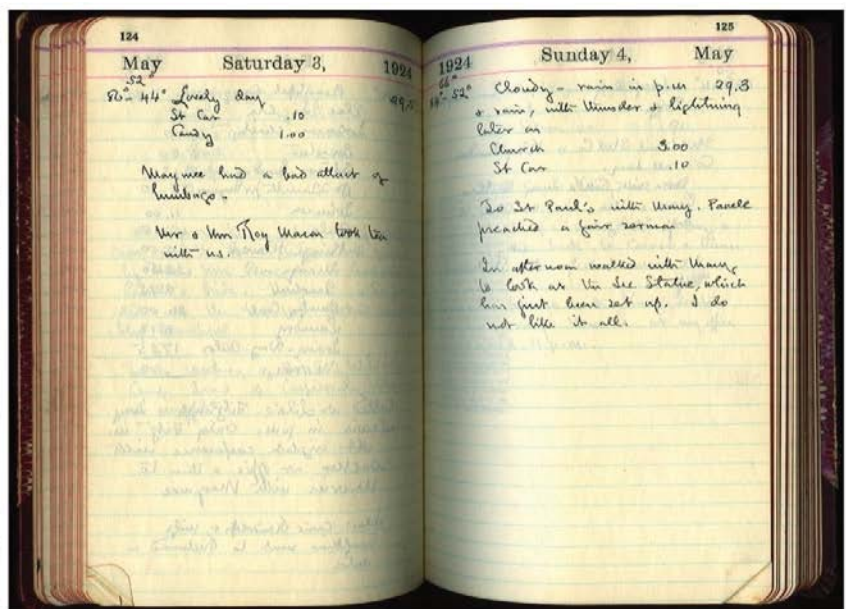 124
May Saturday 3, 1924
52°
80°- 44° Lovely day 29.5
St Car .10
Candy 1.00
Maymee had a bad attack of
lumbago.
Mr & Mrs Roy Mason took tea
with us.
125
1924 Sunday 4, May
66°
- 52° Cloudy - rain in p.m 29.3
& rain, with thunder & lightning
later on
Church 3.00
St Car .10
To St Paul's with Mary.
preached a fair sermon
In afternoon walked with Mary
to look at the Lee Statue, which
has just been set up. I do
not like it all.